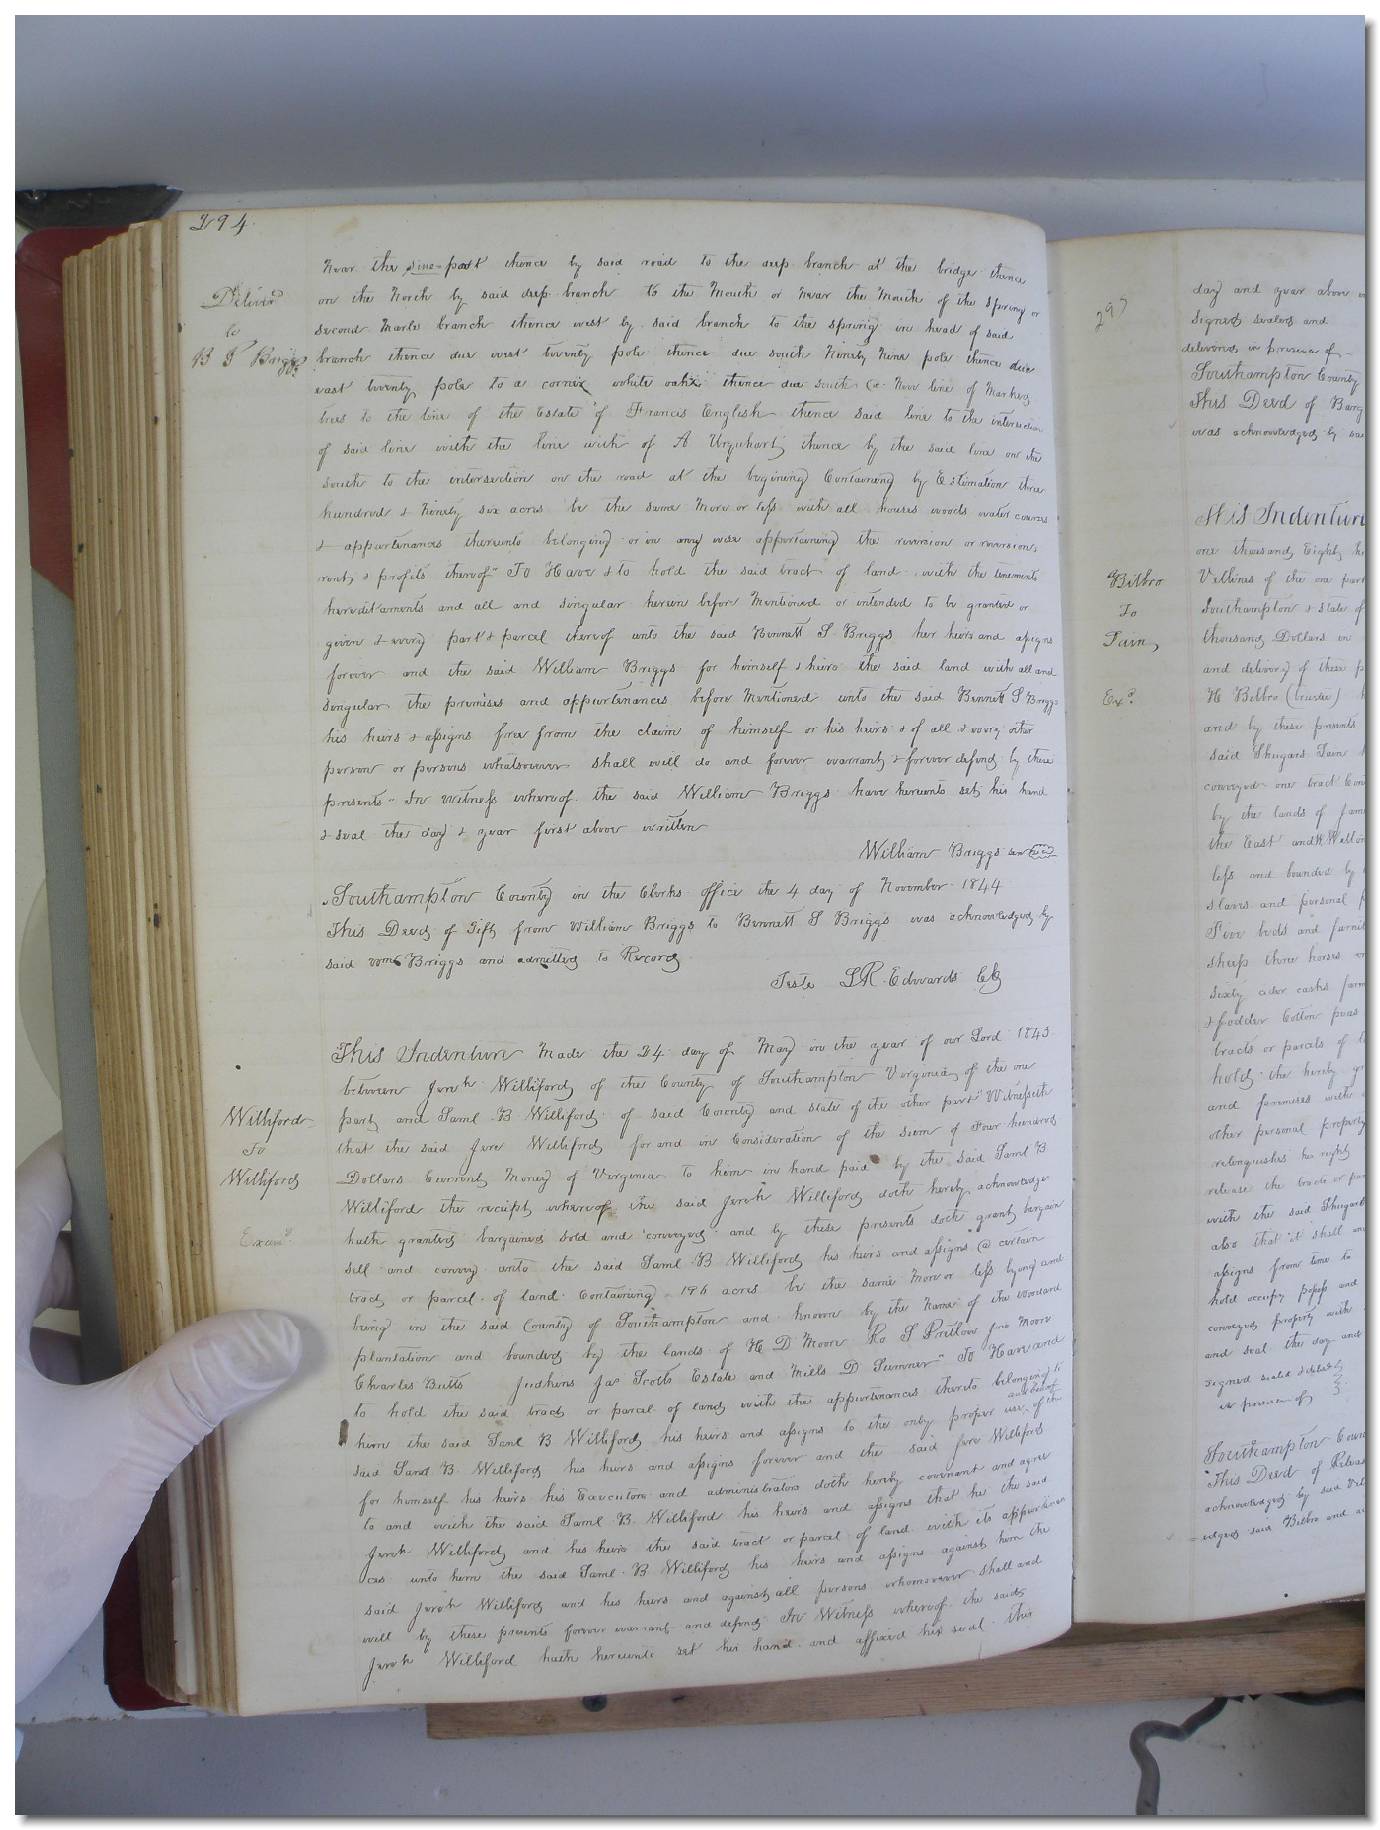 294
near the line post thence by said road to the deep branch at the bridge thence
on the North by said deep branch to the Mouth or near the Mouth of the spring or
second Marle branch thence west by said branch to the spring in head of said
branch thence due west twenty pole thence due south Ninety Nine pole thence due
east twenty pole to a corner white oak thence due south a New line of Marked
trees to the line of the Estate of Francis English thence said line to the intersection
of said line with the line with of A Urquhart, thence by the said line on the
south to the intersection on the road at the begining Containing by Estimation three
hundred & Ninety six acres be the same More or less with all houses woods water courses
& appurtenances thereunto belonging or in any wise appertaining the revision or reversions,
rents & profits thereof" To Have & to hold the said tract of land with the tenements
hereditaments and all and singular herein before Mentioned or intended to be granted or
given & every part & parcel thereof unto the said Bennett S Briggs her heirs and assigns
forever and the said William Briggs for himself & heirs the said land with all and
singular the premises and appurtenances before Mentioned unto the said Bennett S Briggs
his heirs & assigns free from the claim of himself or his heirs & of all & every other
person or persons whatsoever shall will do and forever warrant & forever defend by these
presents" In witness whereof the said William Briggs have hereunto set his hand
& seal the day & year first above written
William Briggs sen
Southampton County in the Clerks office the 4 day of November 1844
This Deed of Gift from William Briggs to Bennett S Briggs was acknowledged by
said Wm Briggs and admitted to Record
Teste L R Edwards Clk
Deliverd
to
B S Briggs
This Indenture Made the 24 day of May in the year of our Lord 1843
between Jereh Williford of the County of Southampton Virginia of the one
part and Saml B Williford of said County and state of the other part" Witnesseth
that the said Jere Williford for and in Consideration of the sum of Four hundred
Dollars Current Money of Virginia to him in hand paid by the said Saml B
Williford the receipt whereof the said Jereh Williford doth hereby acknowledge
hath granted bargained sold and conveyed and by these presents doth grant bargain
sell and convey unto the said Saml B Williford his heirs and assigns @ certain
tract or parcel of land Containing 196 acres be the same More or less lying and
being in the said County of Southampton and known by the Name of the Woodard
plantation and bounded by the lands of H D Moore Ro S Pritlow Jno Moore
Charles Butts Judkins Jas Scotts Estate and Mills D Sumner" To Have and
to hold the said tract or parcel of land with the appurtenances thereto belonging to
him the said Saml B Williford his heirs and assigns to the only proper use and behoof of the
said Saml B. Williford his heirs and assigns forever and the said Jere Williford
for himself his heirs his Executors and administrators doth hereby covenant and agree
to and with the said Saml B. Williford his heirs and assigns that he the said
Jereh Williford and his heirs the said tract or parcel of land with its appurtenan
ces unto him the said Saml B Williford his heirs and assigns against him the
said Jereh Williford and his heirs and against all persons whomsoever shall and
will by these presents forever warrant and defend In Witness whereof the said
Jereh Williford hath hereunto set his hand and affixed his seal this
Williford
To
Williford
Examd
297
day and year above
signed sealed and
delivered in presence of
Southampton County
This Deed of Barg
was acknowledged by
This Indenture
one thousand Eight
of the one part
Southampton & state of
thousand Dollars in
and delivery of these
H Bilbro (trustee)
and by these presents
said Shugars Tain
conveyed one tract
by the lands of
the East and
less and bounded by
slaves and personal
Five beds and furnit
sheep three horses
sixty cider casks
& fodder Cotton peas
tracts or parcels of
hold the hereby
and premises with
other personal property
relenquishes his right
release the tracts or
with the said Shugars
also that it shall
assigns from time to
hold occupy possess and
conveyed property with
and seal the day and
signed sealed & deld
in presence of
Southampton
This Deed of Releas
acknowledged by said
edged said Bilbro and
Bilbro
To
Tain
Exd